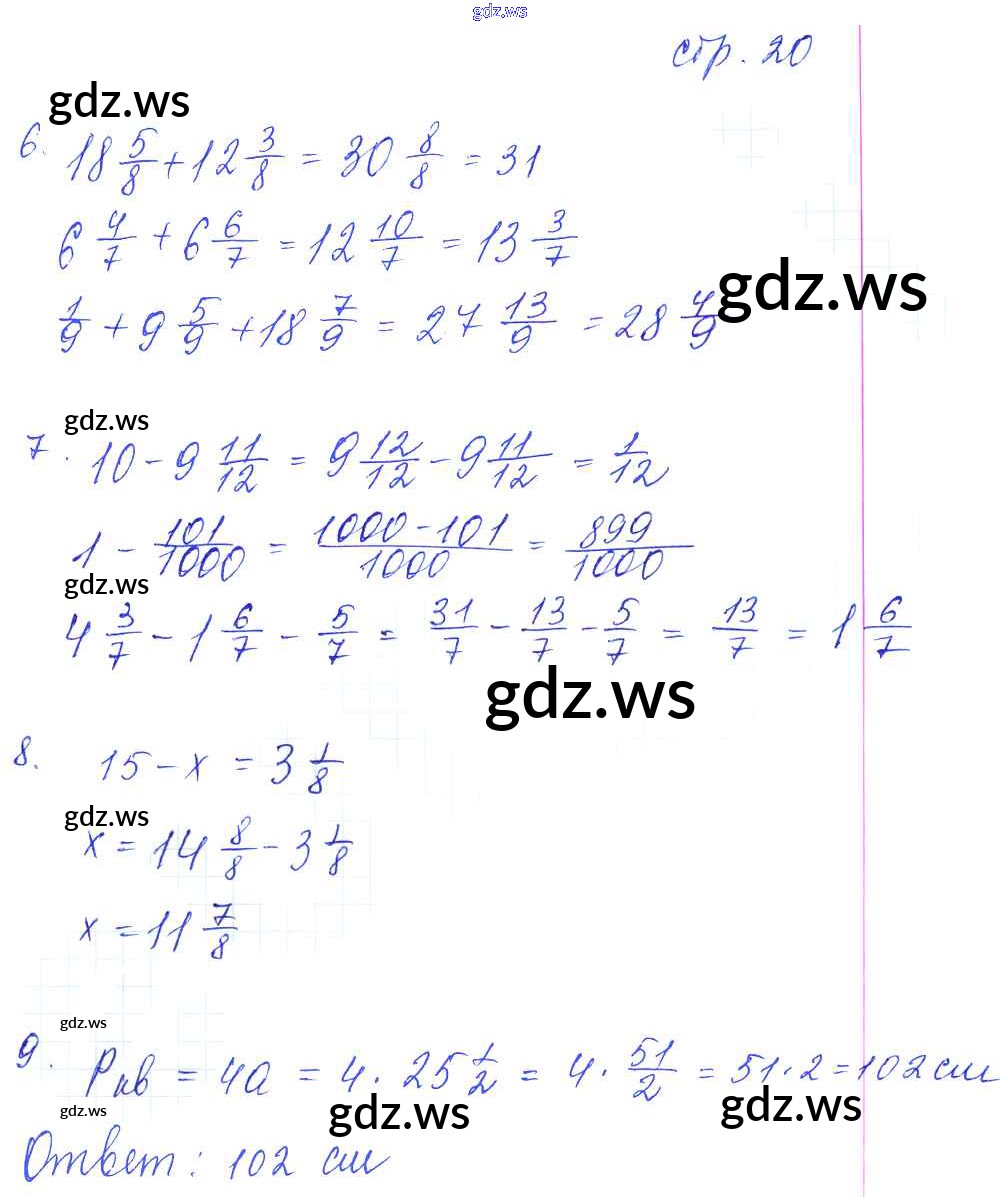 gdz.ws
стр. 20
gdz.ws
6. 18 5/8 + 12 3/8 = 30 8/8 = 31
6 4/7 + 6 6/7 = 12 10/7 = 13 3/7
gdz.ws
1/9 + 9 5/9 + 18 7/9 = 27 13/9 = 28 4/9
gdz.ws
7. 10 - 9 11/12 = 9 12/12 - 9 11/12 = 1/12
1 - 101/1000 = 1000 - 101/1000 = 899/1000
gdz.ws
4 3/7 - 1 6/7 - 5/7 = 31/7 - 13/7 - 5/7 = 13/7 = 1 6/7
gdz.ws
8. 15 - x = 3 1/8
gdz.ws
x = 14 8/8 - 3 1/8
x = 11 7/8
gdz.ws
9. Pкв = 4a = 4 · 25 1/2 = 4 · 51/2 = 51 · 2 = 102 см
gdz.ws
gdz.ws
gdz.ws
Ответ: 102 см